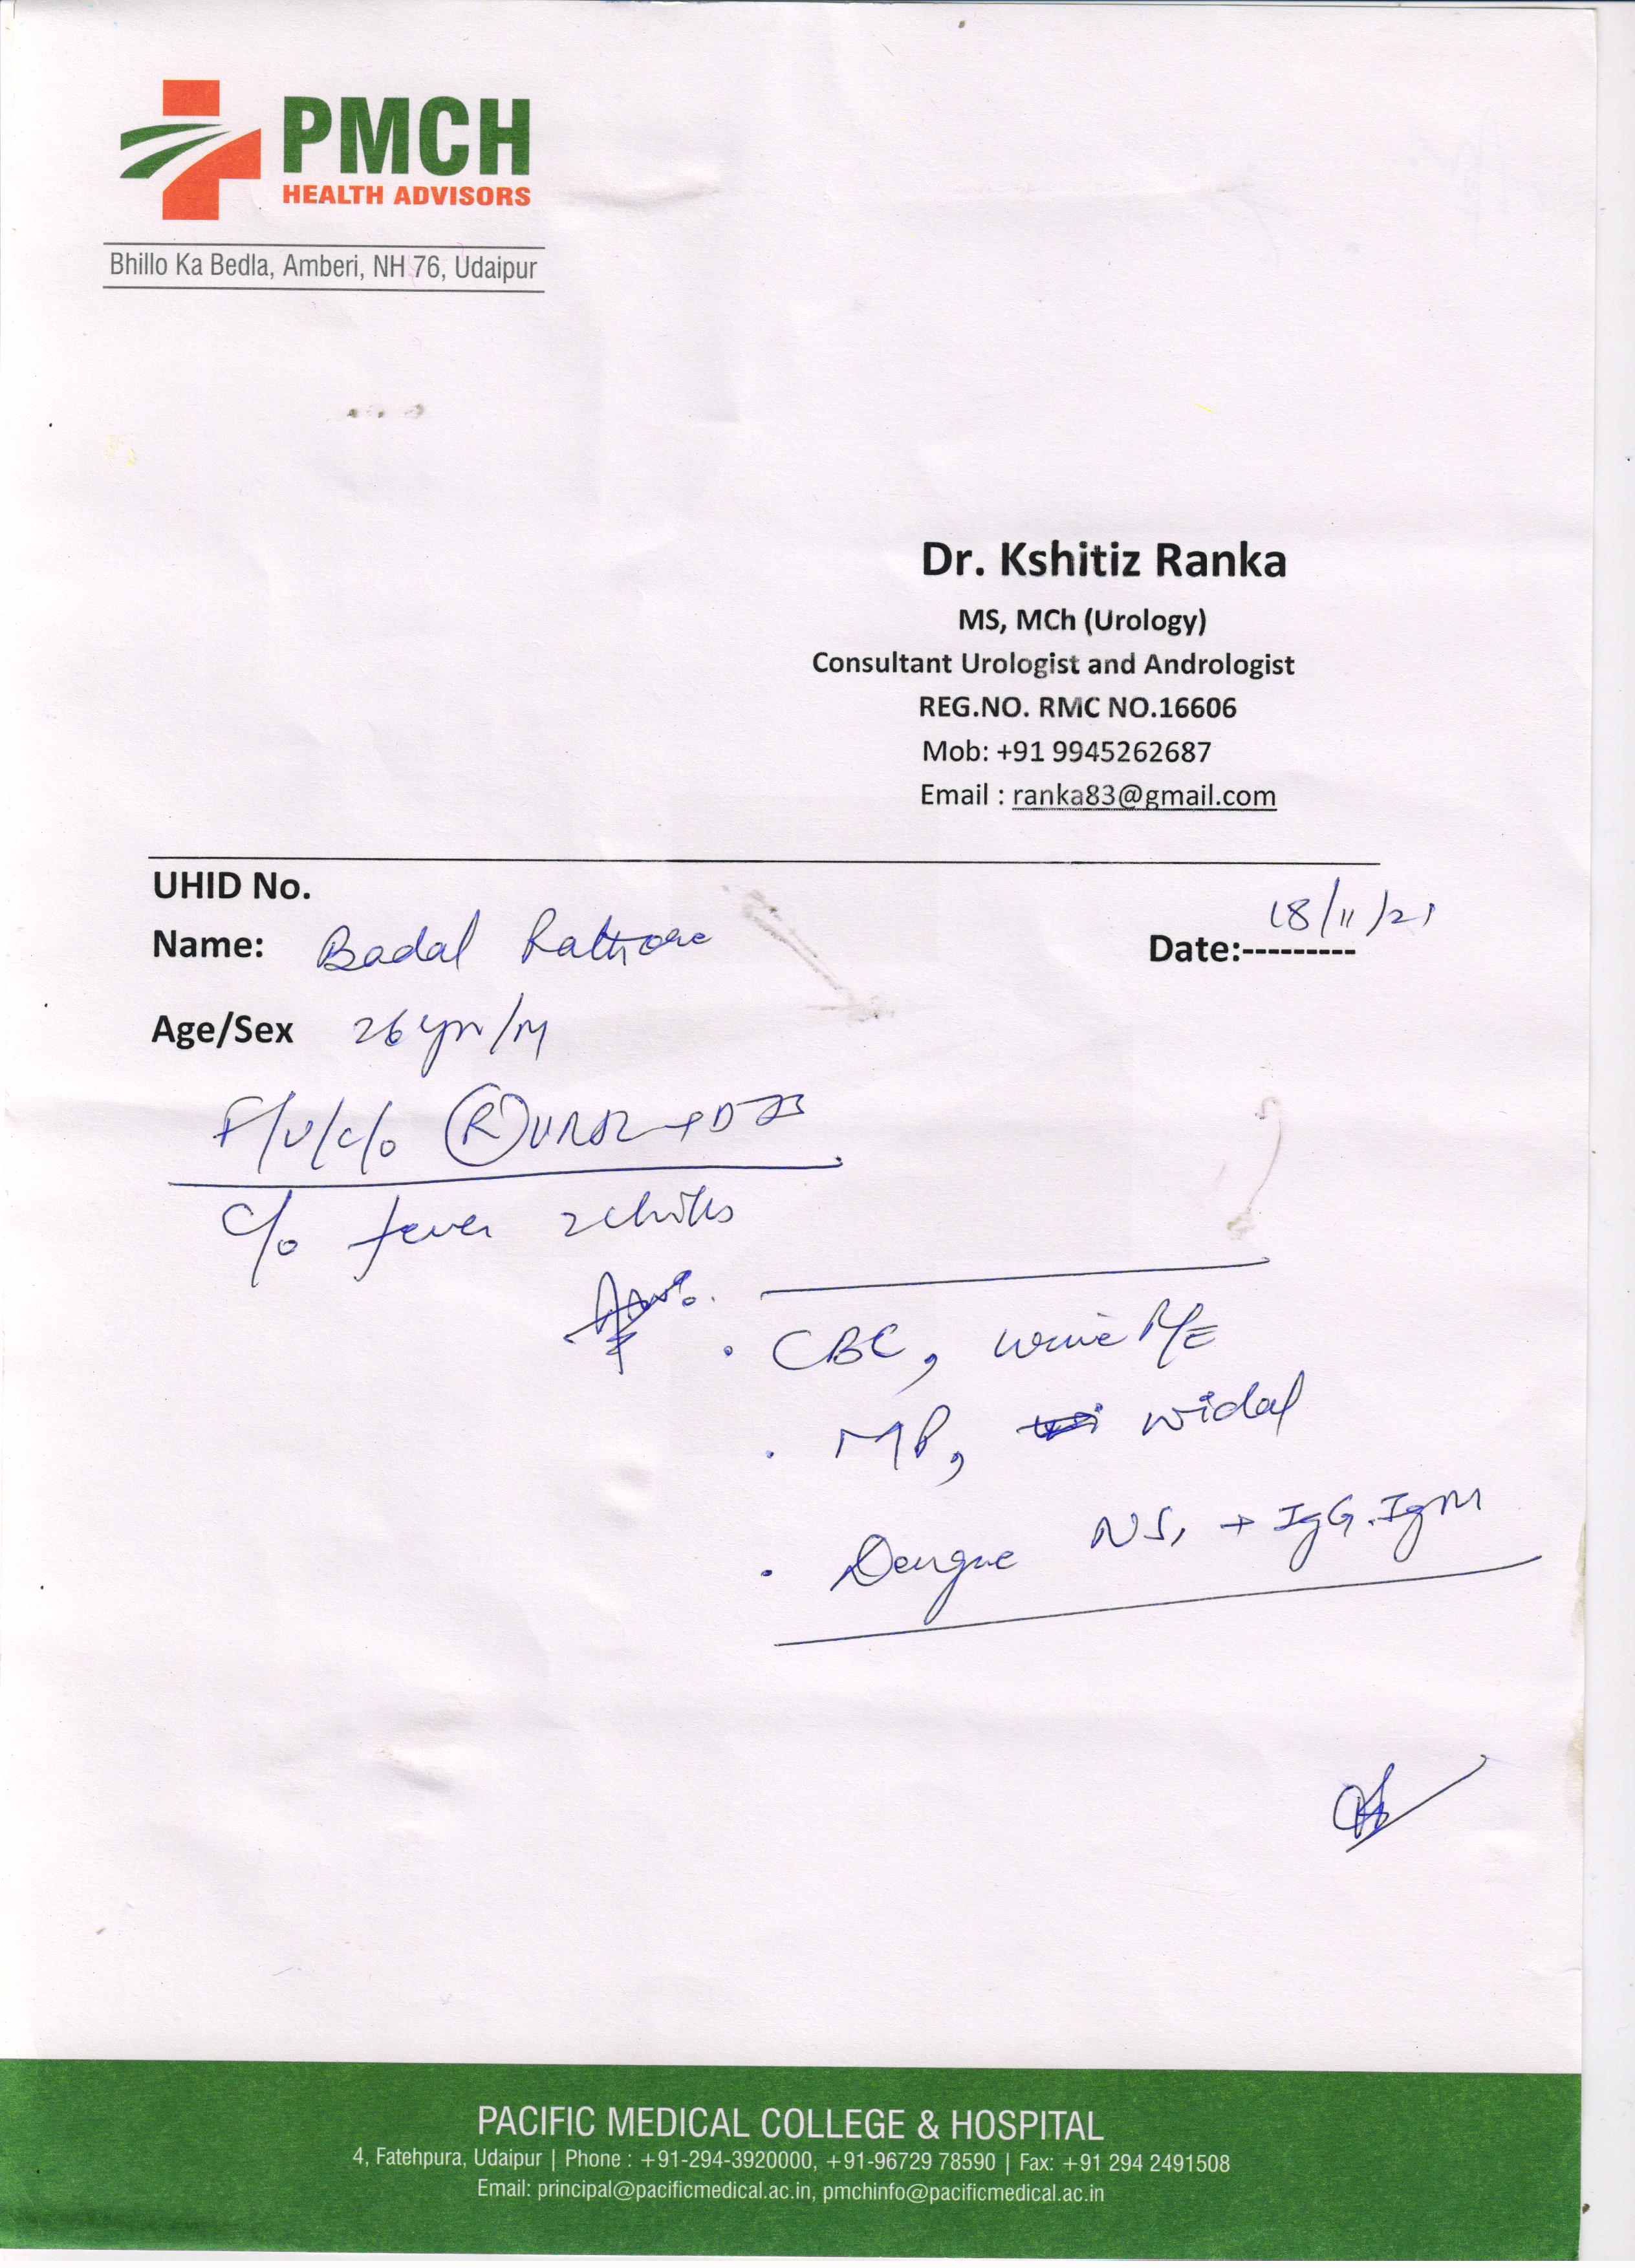 PMCH
HEALTH ADVISORS
Bhillo Ka Bedla, Amberi, NH 76, Udaipur
Dr. Kshitiz Ranka
MS, MCh (Urology)
Consultant Urologist and Andrologist
REG.NO. RMC NO.16606
Mob: +91 9945262687
Email : ranka83@gmail.com
UHID No.
Name: Badal Rathore
Date:--------- 18/11/21
Age/Sex 26 yrs/M
F/U/c/o (R) URSL + DJS
c/o fever c chills
. CBC, urine R/E
. MP, widal
. Dengue NS1 + IgG.IgM
PACIFIC MEDICAL COLLEGE & HOSPITAL
4, Fatehpura, Udaipur | Phone : +91-294-3920000, +91-96729 78590 | Fax: +91 294 2491508
Email: principal@pacificmedical.ac.in, pmchinfo@pacificmedical.ac.in